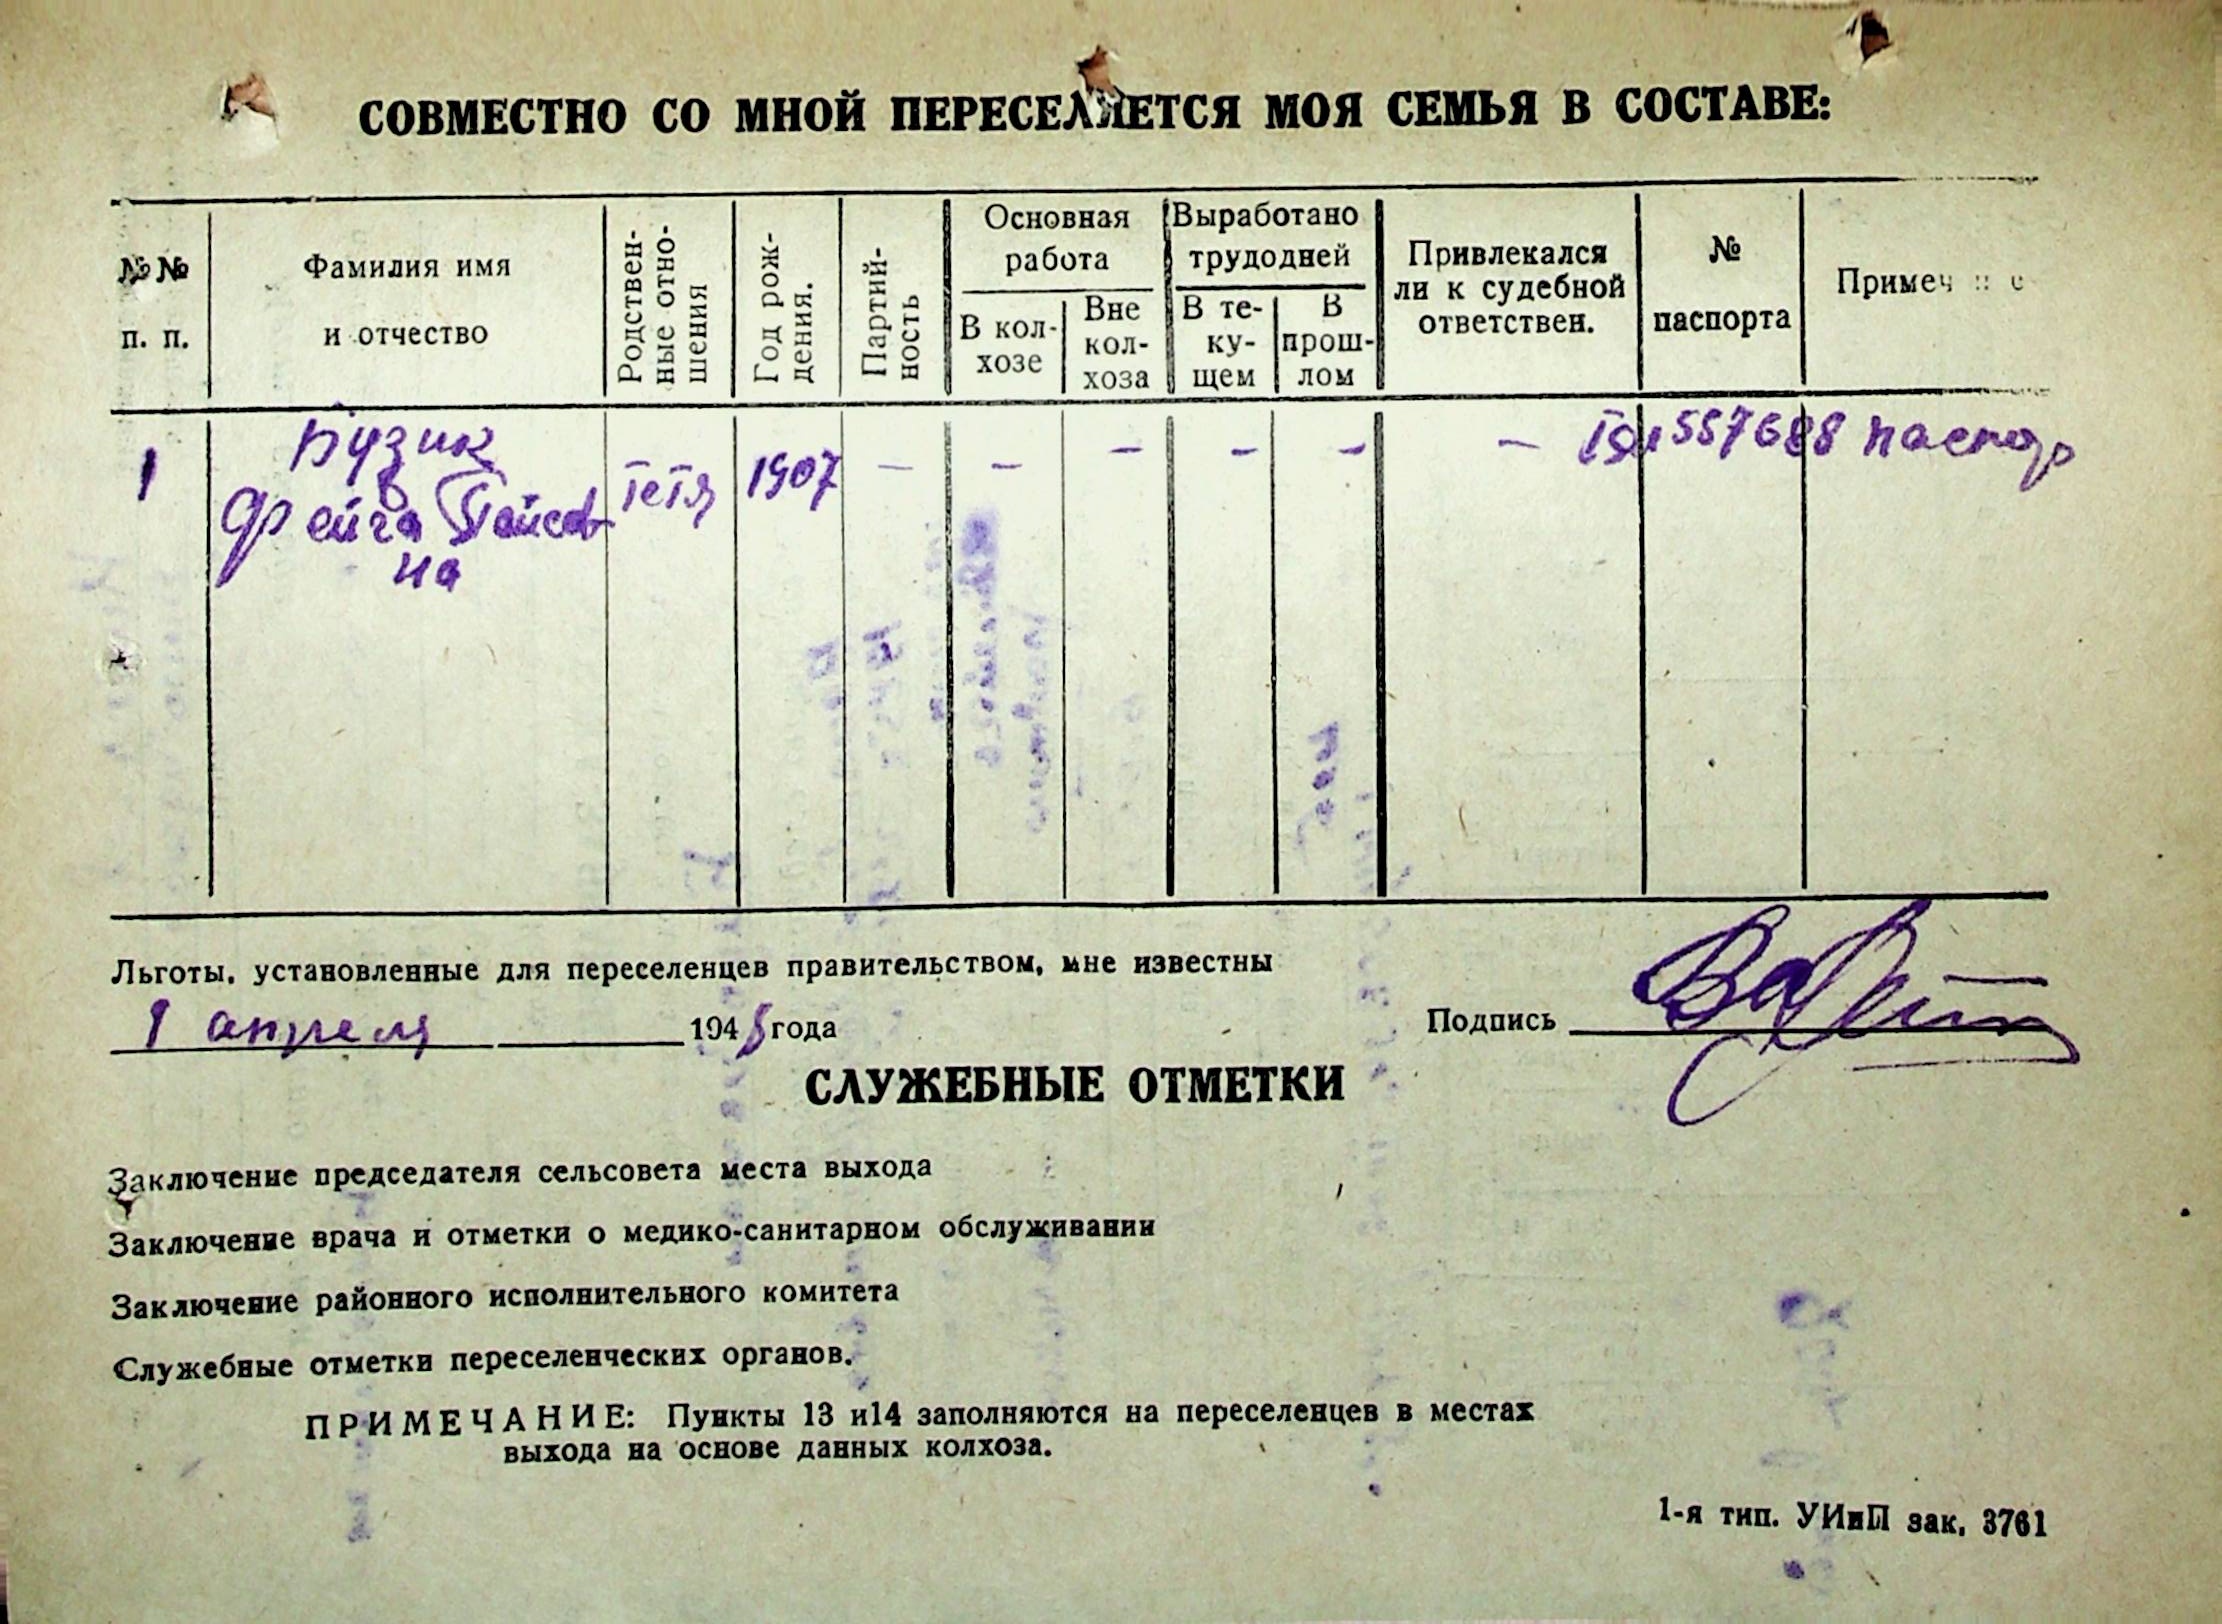 СОВМЕСТНО СО МНОЙ ПЕРЕСЕЛЯЕТСЯ МОЯ СЕМЬЯ В СОСТАВЕ:
№№ п. п.
Фамилия имя и отчество
Родствен-
ные отно-
шения
Год рож-
дения.
Партий-
ность
Основная работа
В кол-
хозе
Вне
кол-
хоза
Выработано трудодней
В те-
ку-
щем
В
прош-
лом
Привлекался
ли к судебной
ответствен.
№
паспорта
Примеч
1
Бузик
Фейга Пейсов
на
тетя
1907
— — — — — —
557688 паспор
Льготы, установленные для переселенцев правительством, мне известны
1 апреля 1948 года
Подпись
СЛУЖЕБНЫЕ ОТМЕТКИ
Заключение председателя сельсовета места выхода
Заключение врача и отметки о медико-санитарном обслуживании
Заключение районного исполнительного комитета
Служебные отметки переселенческих органов.
ПРИМЕЧАНИЕ: Пункты 13 и14 заполняются на переселенцев в местах
выхода на основе данных колхоза.
1-я тип. УИиП зак. 3761